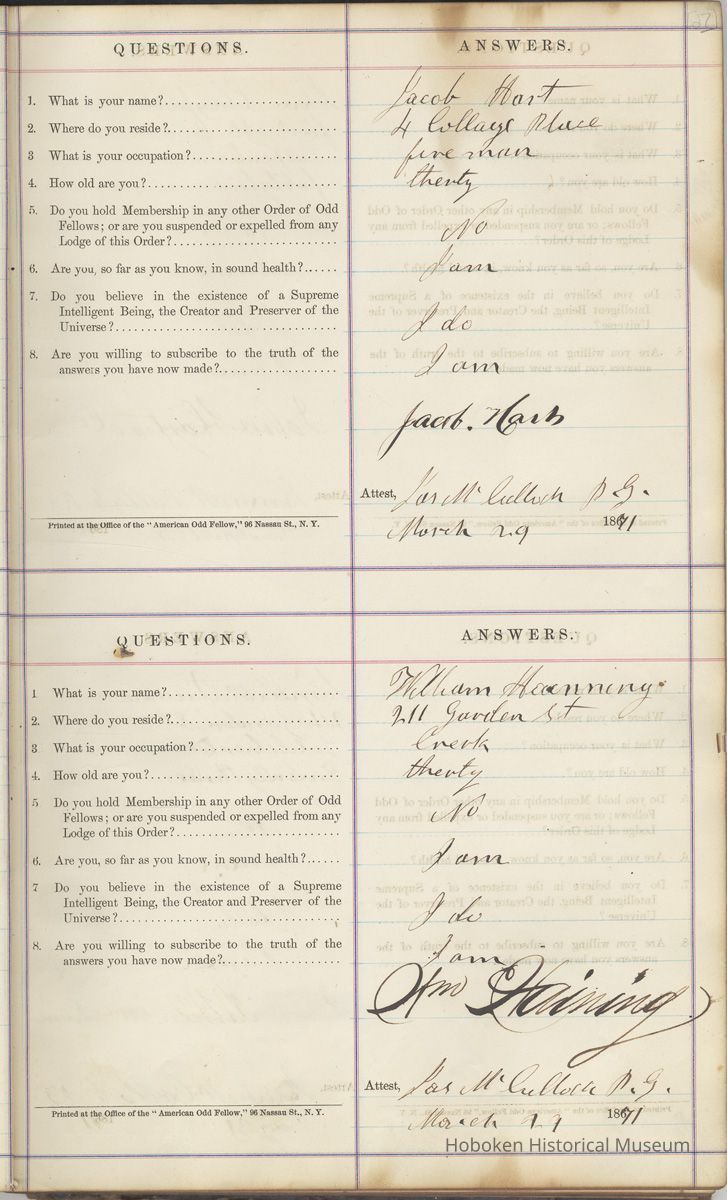 27
QUESTIONS.
ANSWERS.
1. What is your name?
Jacob Hart
2. Where do you reside?
4 Collage Place
3 What is your occupation?
fire man
4. How old are you?
therty
5. Do you hold Membership in any other Order of Odd
Fellows; or are you suspended or expelled from any
Lodge of this Order?
No
6. Are you, so far as you know, in sound health?
I am
7. Do you believe in the existence of a Supreme
Intelligent Being, the Creator and Preserver of the
Universe?
I do
8. Are you willing to subscribe to the truth of the
answers you have now made?
I am
Jacob. Hart
Attest, Jas McCulloch P. G.
Printed at the Office of the "American Odd Fellow," 96 Nassau St., N. Y.
March 29 1871
QUESTIONS.
ANSWERS.
1 What is your name?
William Hanning
2. Where do you reside?
211 Garden St
3 What is your occupation?
Clerk
4. How old are you?
therty
5 Do you hold Membership in any other Order of Odd
Fellows; or are you suspended or expelled from any
Lodge of this Order?
No
6. Are you, so far as you know, in sound health?
I am
7 Do you believe in the existence of a Supreme
Intelligent Being, the Creator and Preserver of the
Universe?
I do
8. Are you willing to subscribe to the truth of the
answers you have now made?
I am
Wm Haining
Attest, Jas McCulloch P. G.
Printed at the Office of the "American Odd Fellow," 96 Nassau St., N. Y.
March 29 1871
Hoboken Historical Museum